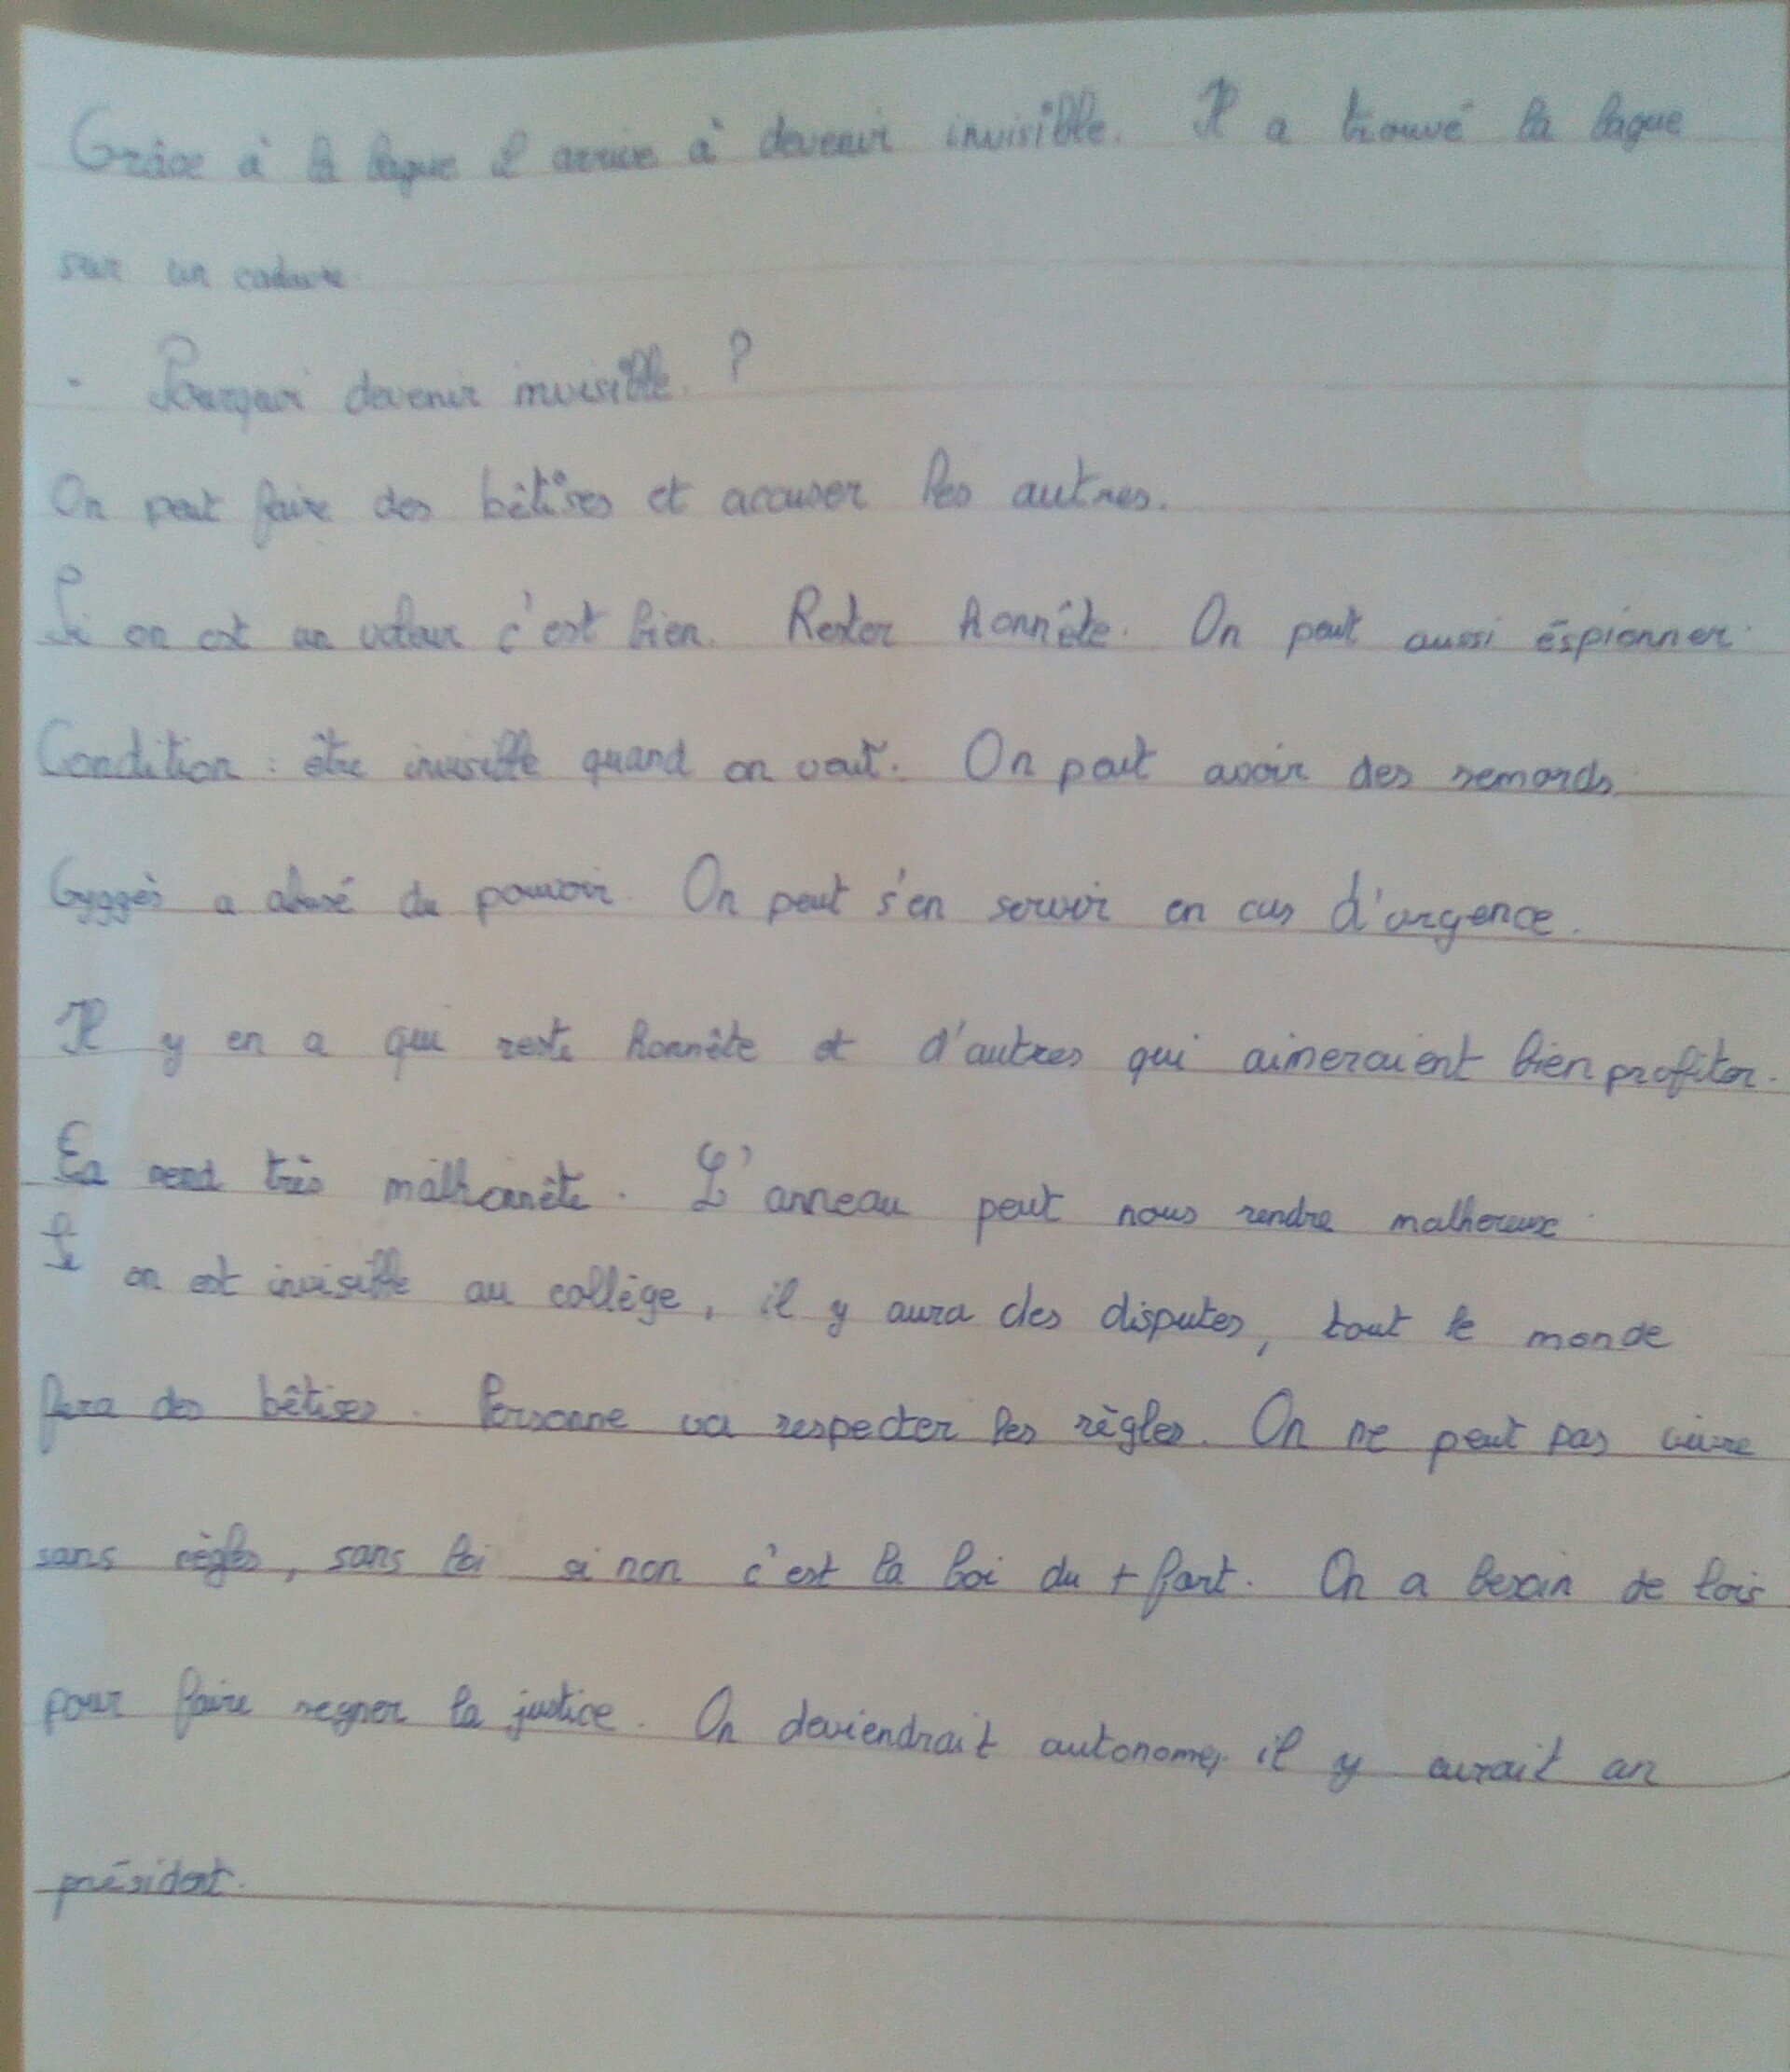 Grâce à la bague il arrive à devenir invisible. Il a trouvé la bague
sur un cadavre.
- Pourquoi devenir invisible. ?
On peut faire des bêtises et accuser les autres.
Si on est un voleur c'est bien. Rester honnête. On peut aussi éspionner.
Condition : être invisible quand on veut. On peut avoir des remords.
Gyggès a abusé du pouvoir. On peut s'en servir en cas d'urgence.
Il y en a qui reste honnête et d'autres qui aimeraient bien profiter.
Ça rend très malhonnête. L'anneau peut nous rendre malhereux.
Si on est invisible au collège, il y aura des disputes, tout le monde
fera des bêtises. Personne va respecter les règles. On ne peut pas vivre
sans règles, sans loi si non c'est la loi du + fort. On a besoin de lois
pour faire regner la justice. On deviendrait autonomes, il y aurait un
président.